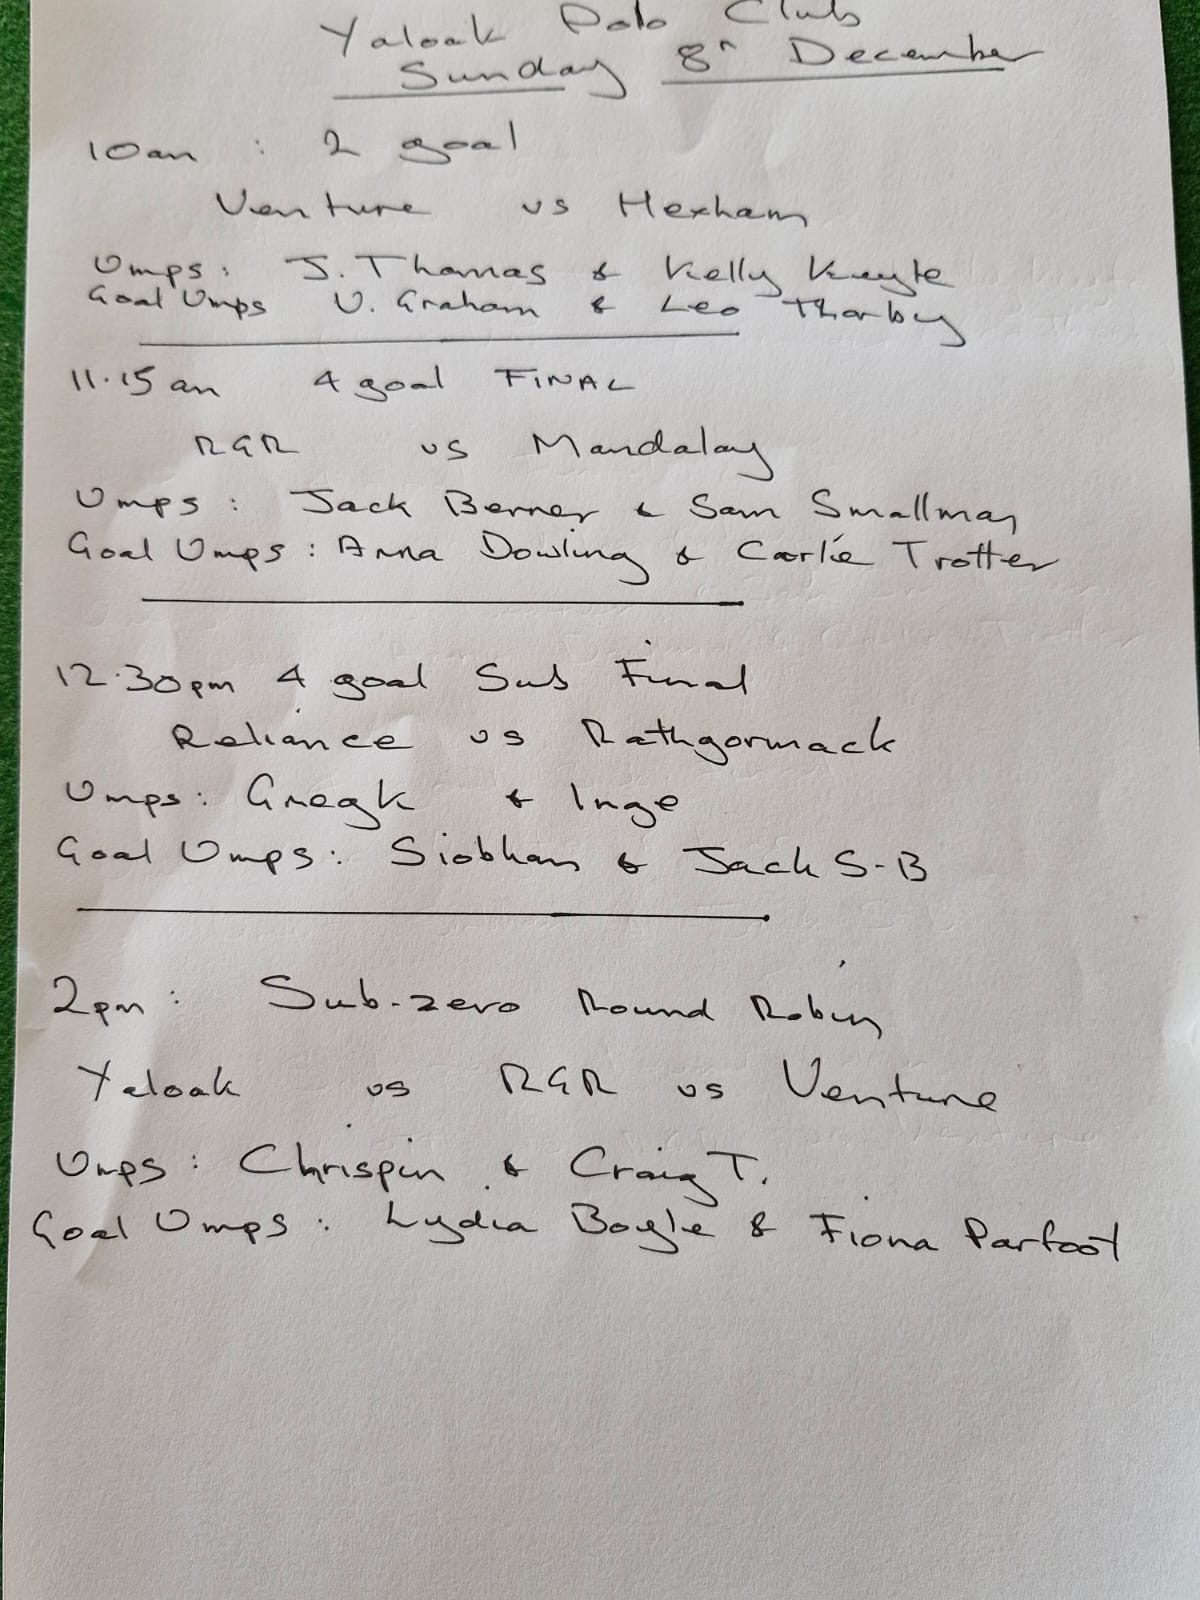 Yaloak Polo Club
Sunday 8th December
10am : 2 goal
Venture vs Hexham
Umps: J. Thomas & Kelly Kuyte
Goal Umps V. Graham & Leo Thorby
11.15am 4 goal FINAL
RGR vs Mandalay
Umps: Jack Berner & Sam Smallman
Goal Umps: Anna Dowling & Carlie Trotter
12.30pm 4 goal Sub Final
Reliance vs Rathgormack
Umps: Greg K & Inge
Goal Umps: Siobhan & Jack S-B
2pm: Sub-zero Round Robin
Yaloak vs RGR vs Venture
Umps: Chrispin & Craig T.
Goal Umps: Lydia Bogle & Fiona Parfoot